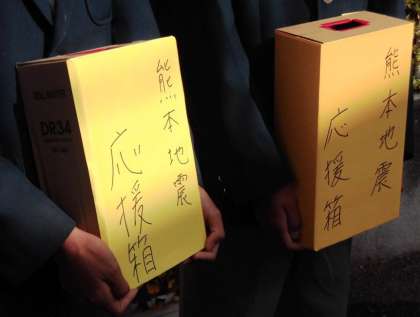 熊本地震
応援箱
DR34
熊本地震
応援箱